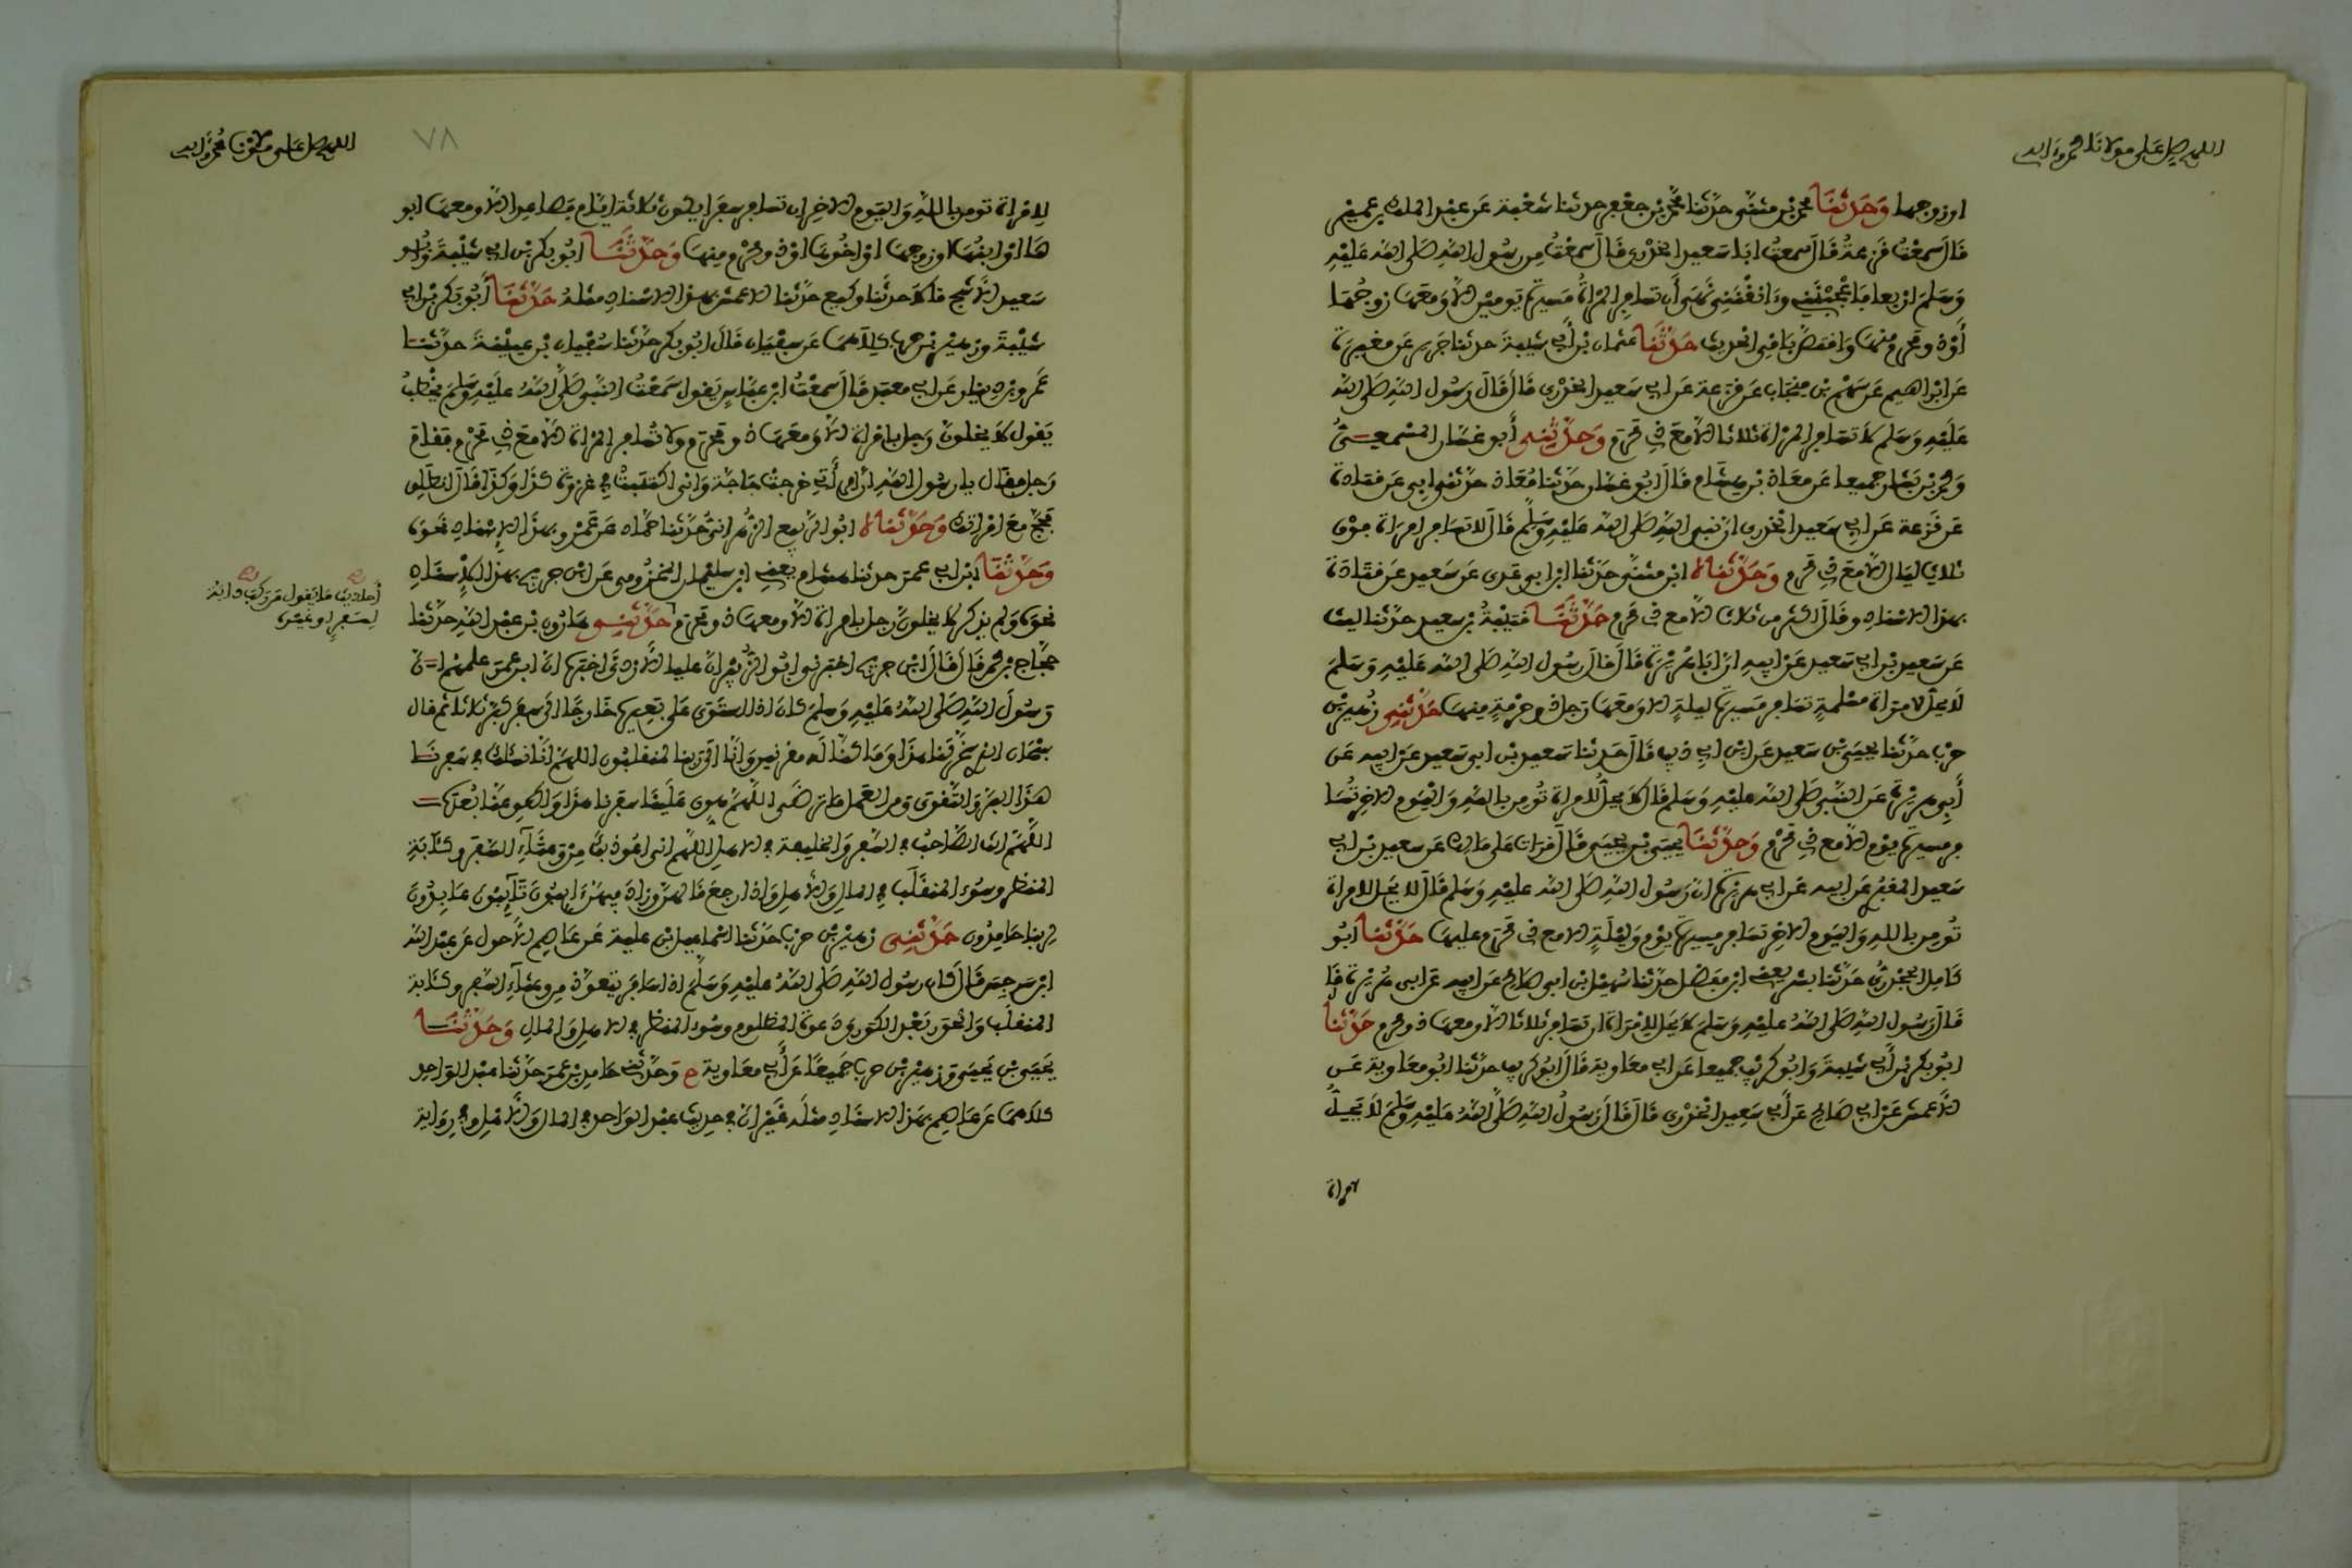 اللهم صل على مولانا محمد وءاله
او زوجها وَحَدَّثَنَا محمد بن مثنى حدثنا محمد بن جعفر حدثنا شعبة عن عبد الملك بن عمير
قال سمعت قزعة قال سمعت ابا سعيد الخدري قال سمعت من رسول الله صلى الله عليه
وسلم اربعا فاعجبنني وءانقنني نهى أن تسافر المرأة مسيرة يومين الا ومعها زوجها
أو ذو محرم منها واقتص باقي الحديث حدثنا عثمان بن أبي شيبة حدثنا جرير عن مغيرة
عن ابراهيم عن سهم بن منجاب عن قزعة عن ابي سعيد الخدري قال قال رسول الله صلى الله
عليه وسلم لا تسافر المرأة ثلاثا الا مع ذي محرم وحدثني أبو غسان المسمعي
ومحمد بن بشار جميعا عن معاذ بن هشام قال ابو غسان حدثنا معاذ حدثني ابي عن قتادة
عن قزعة عن ابي سعيد الخدري ان نبي الله صلى الله عليه وسلم قال لا تسافر امرأة فوق
ثلاث ليال الا مع ذي محرم وحدثناه ابن مثنى حدثنا ابن ابي عدي عن سعيد عن قتادة
بهذا الاسناد وقال اكثر من ثلاث الا مع ذي محرم حدثنا قتيبة بن سعيد حدثنا ليث
عن سعيد بن ابي سعيد عن ابيه ان ابا هريرة قال قال رسول الله صلى الله عليه وسلم
لا يحل لامرأة مسلمة تسافر مسيرة ليلة الا ومعها رجل ذو حرمة منها حدثني زهير بن
حرب حدثنا يحيى بن سعيد عن ابن ابي ذيب قال حدثنا سعيد بن ابي سعيد عن ابيه عن
أبي هريرة عن النبي صلى الله عليه وسلم قال لا يحل لامرأة تومن بالله واليوم الاخر تسا
فر مسيرة يوم الا مع ذي محرم وحدثنا يحيى بن يحيى قال قرات على مالك عن سعيد بن ابي
سعيد المقبري عن ابيه عن ابي هريرة ان رسول الله صلى الله عليه وسلم قال لا يحل لامرأة
تومن بالله واليوم الاخر تسافر مسيرة يوم وليلة الا مع ذي محرم عليها حدثنا ابو
كامل الجحدري حدثنا بشر يعني ابن مفضل حدثنا سهيل ابن ابي صالح عن ابيه عن ابي هريرة قا
قال رسول الله صلى الله عليه وسلم لا يحل لامرأة ان تسافر ثلاثا الا ومعها ذو محرم حدثنا
ابو بكر بن أبي شيبة وابو كريب جميعا عن ابي معاوية قال ابو كريب حدثنا ابو معاوية عن
الاعمش عن ابي صالح عن أبي سعيد الخدري قال قال رسول الله صلى الله عليه وسلم لا يحل
لامرأة
اللهم صل على مولانا محمد وءاله
٧٨
لامرأة تومن بالله واليوم الاخر ان تسافر سفرا يكون ثلاثة ايام فصاعدا الا ومعها ابو
ها او ابنها او زوجها او اخوها او ذو محرم منها وحدثنا ابو بكر بن ابي شيبة وابو
سعيد الاشج قالا حدثنا وكيع حدثنا الاعمش بهذا الاسناد مثله حدثنا أبو بكر بن ابي
شيبة وزهير بن حرب كلاهما عن سفيان قال ابو بكر حدثنا سفيان بن عيينة حدثنا
عمرو بن دينار عن ابي معبد قال سمعت ابن عباس يقول سمعت النبي صلى الله عليه وسلم يخطب
يقول لا يخلون رجل بامرأة الا ومعها ذو محرم ولا تسافر المرأة الا مع ذي محرم فقام
رجل فقال يا رسول الله ان امرأتي خرجت حاجة واني اكتتبت في غزوة كذا وكذا قال انطلق
فحج مع امرأتك وحدثناه ابو الربيع الزهراني حدثنا حماد عن عمرو بهذا الاسناد نحوه
وحدثنا ابن ابي عمر حدثنا هشام يعني ابن سليمان المخزومي عن ابن جريج بهذا الاسناد
نحوه ولم يذكر لا يخلون رجل بامرأة الا ومعها ذو محرم حدثني هارون بن عبد الله حدثنا
حجاج بن محمد قال قال ابن جريج اخبرني ابو الزبير ان عليا الازدي اخبره ان ابن عمر علمهم ان
رسول الله صلى الله عليه وسلم كان اذا استوى على بعيره خارجا الى سفر كبر ثلاثا ثم قال
سبحان الذي سخر لنا هذا وما كنا له مقرنين وانا الى ربنا لمنقلبون اللهم انا نسئلك في سفرنا
هذا البر والتقوى ومن العمل ما ترضى اللهم هون علينا سفرنا هذا واطو عنا بعده
اللهم انت الصاحب في السفر والخليفة في الاهل اللهم اني اعوذ بك من وعثاء السفر وكئابة
المنظر وسوء المنقلب في المال والاهل واذا رجع قالهن وزاد فيهن ءايبون تآئبون عابدون
لربنا حامدون حدثني زهير بن حرب حدثنا اسماعيل ابن علية عن عاصم الاحول عن عبد الله
ابن سرجس قال كان رسول الله صلى الله عليه وسلم اذا سافر يتعوذ من وعثاء السفر وكئابة
المنقلب والحور بعد الكور ودعوة المظلوم وسوء المنظر في الاهل والمال وحدثنا
يحيى بن يحيى وزهير بن حرب جميعا عن أبي معاوية ح وحدثني حامد بن عمر حدثنا عبد الواحد
كلاهما عن عاصم بهذا الاسناد مثله غير ان في حديث عبد الواحد في المال والاهل وفي رواية
أحاديث ما يقول من ركب دابة
لسفر او غيره